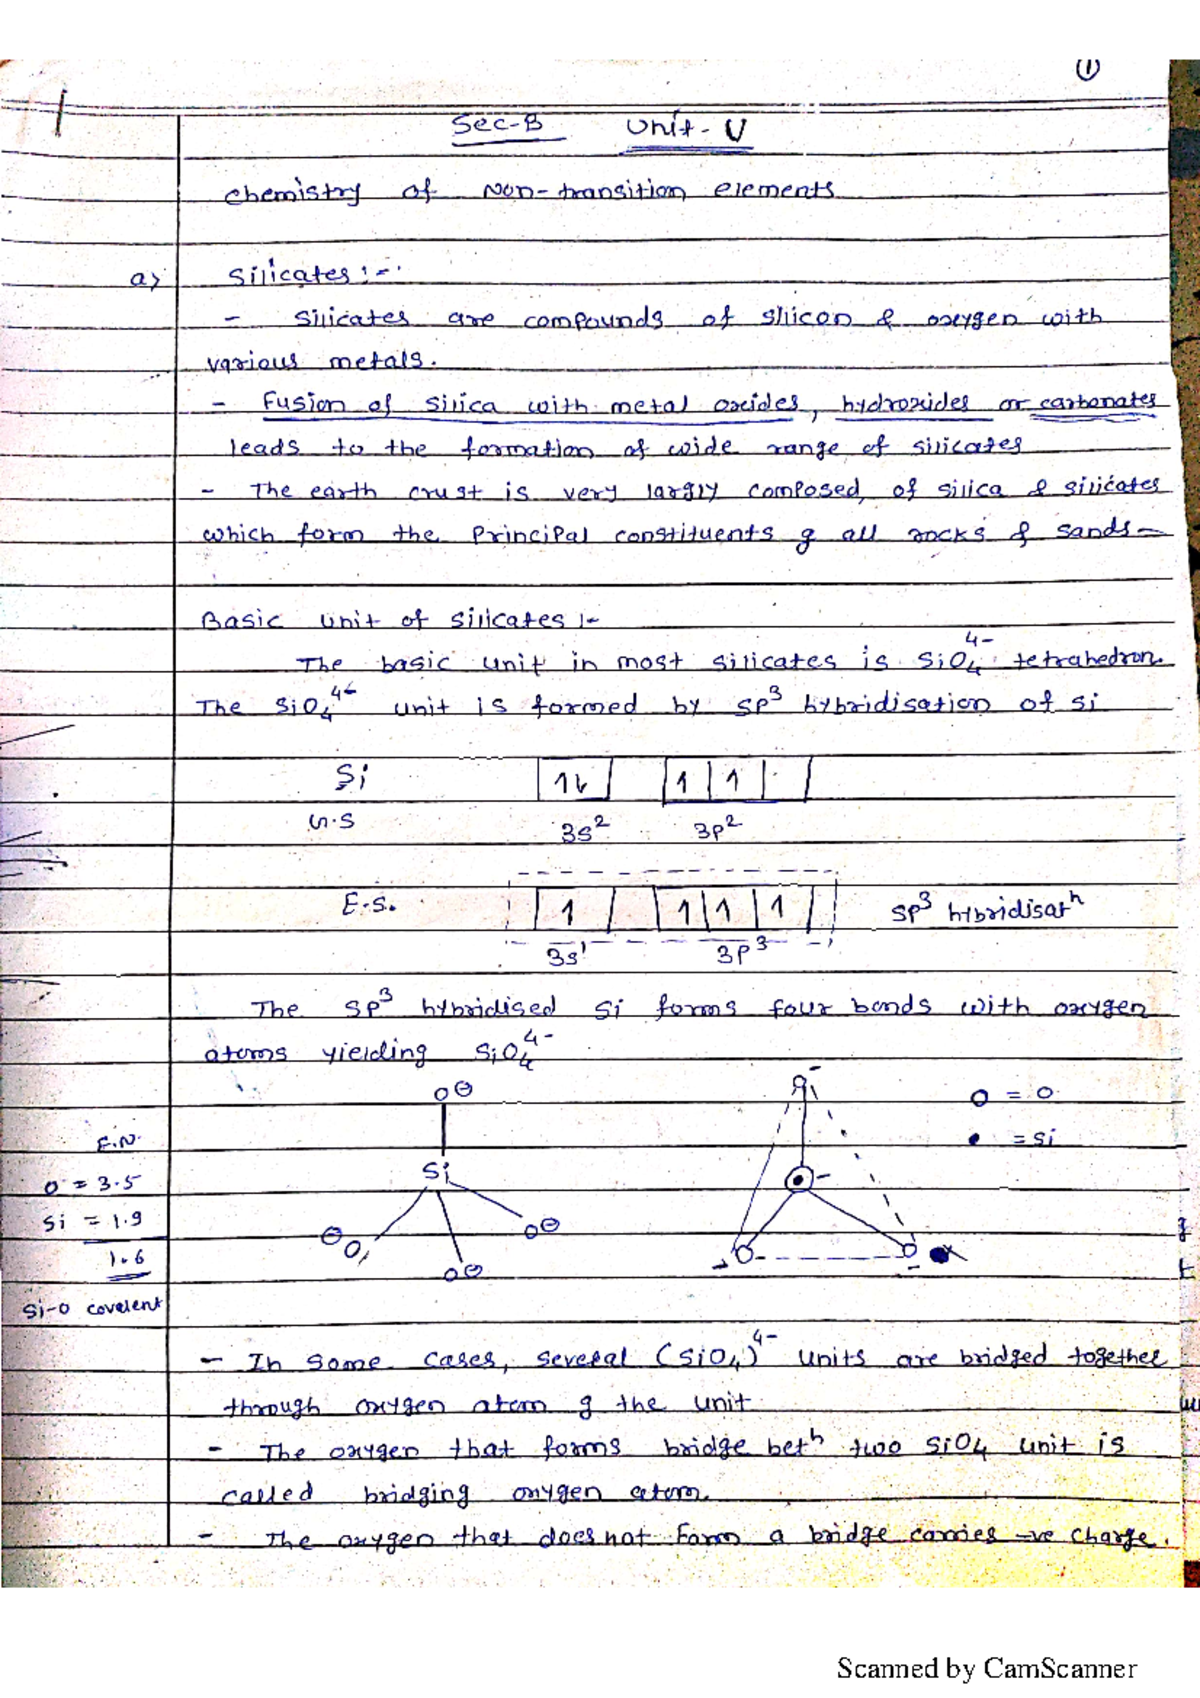 ①
Sec-B Unit-V
Chemistry of Non-transition elements
a) Silicates :-
- Silicates are compounds of silicon & oxygen with
various metals.
- Fusion of silica with metal oxides, hydroxides or carbonates
leads to the formation of wide range of silicates
- The earth crust is very largly composed, of silica & silicates
which form the Principal constituents of all rocks & sands-
Basic unit of silicates :-
The basic unit in most silicates is SiO₄⁴⁻ tetrahedron.
The SiO₄⁴⁻ unit is formed by sp³ hybridisation of si
Si 1↓ 1 1
G.S 3s² 3p²
E.S. 1 1 1 1 sp³ hybridisatʰ
3s¹ 3p³
The sp³ hybridised si forms four bonds with oxygen
atoms yielding SiO₄⁴⁻
O⊖
O = O
E.N.
● = si
O = 3.5
Si
Si = 1.9
⊖O O⊖
1.6
O⊖
Si-O covalent
- In some cases, several (SiO₄)⁴⁻ units are bridged together
through oxygen atom of the unit
- The oxygen that forms bridge betʰ two SiO₄ unit is
called bridging oxygen atom.
- The oxygen that does not form a bridge carries -ve charge.
Scanned by CamScanner